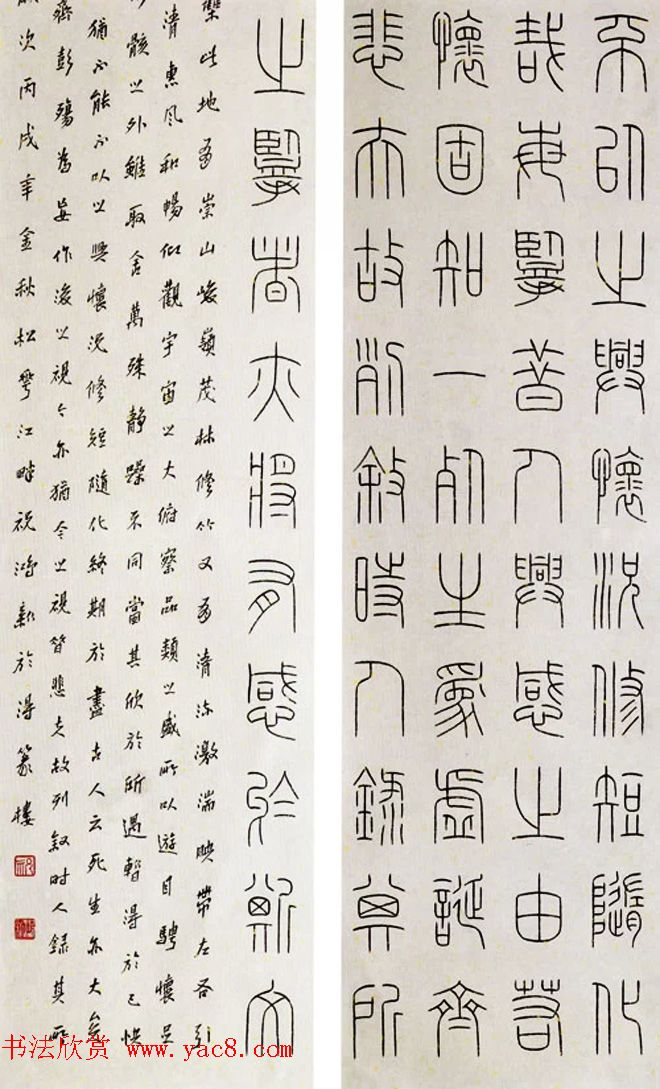 不以之興懷況修短隨化
哉每攬昔人興感之由若
懷固知一死生為虛誕齊
悲夫故列敘時人錄其所
之攬者亦將有感於斯文
集此地有崇山峻嶺茂林修竹又有清流激湍映帶左右引
清惠風和暢仰觀宇宙之大俯察品類之盛所以遊目騁懷足
形骸之外雖取舍萬殊靜躁不同當其欣於所遇暫得於己快
猶不能不以之興懷況修短隨化終期於盡古人云死生亦大矣
齊彭殤為妄作後之視今亦猶今之視昔悲夫故列敘時人錄其所
歲次丙戌年金秋松花江畔祝鴻新於得篆樓
书法欣赏 www.yac8.com